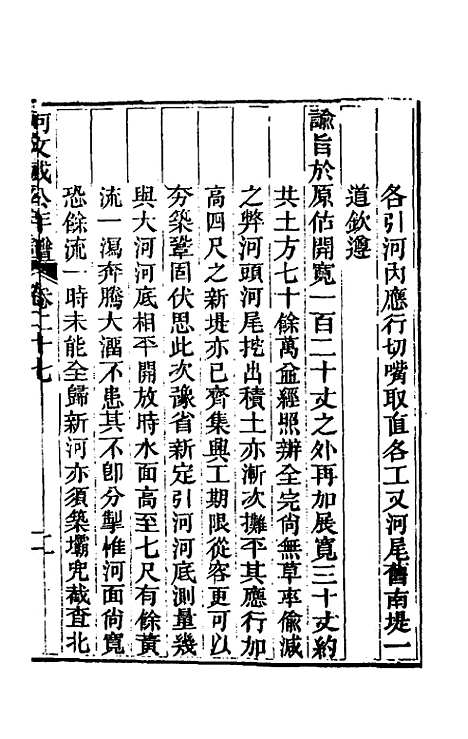 各引河內應行切嘴取直各工又河尾舊南堤一
道欽遵
諭旨於原估開寬一百二十丈之外再加展寬三十丈約
共土方七十餘萬並經照辦全完尙無草率偸減
之弊河頭河尾挖出積土亦漸次攤平其應行加
高四尺之新堤亦已齊集興工期限從容更可以
夯築鞏固伏思此次豫省新定引河河底測量幾
與大河河底相平開放時水面高至七尺有餘黃
流一瀉奔騰大溜不患其不卽分掣惟河面尙寬
恐餘流一時未能全歸新河亦須築壩兜截查北
阿文成公年譜 卷二十七